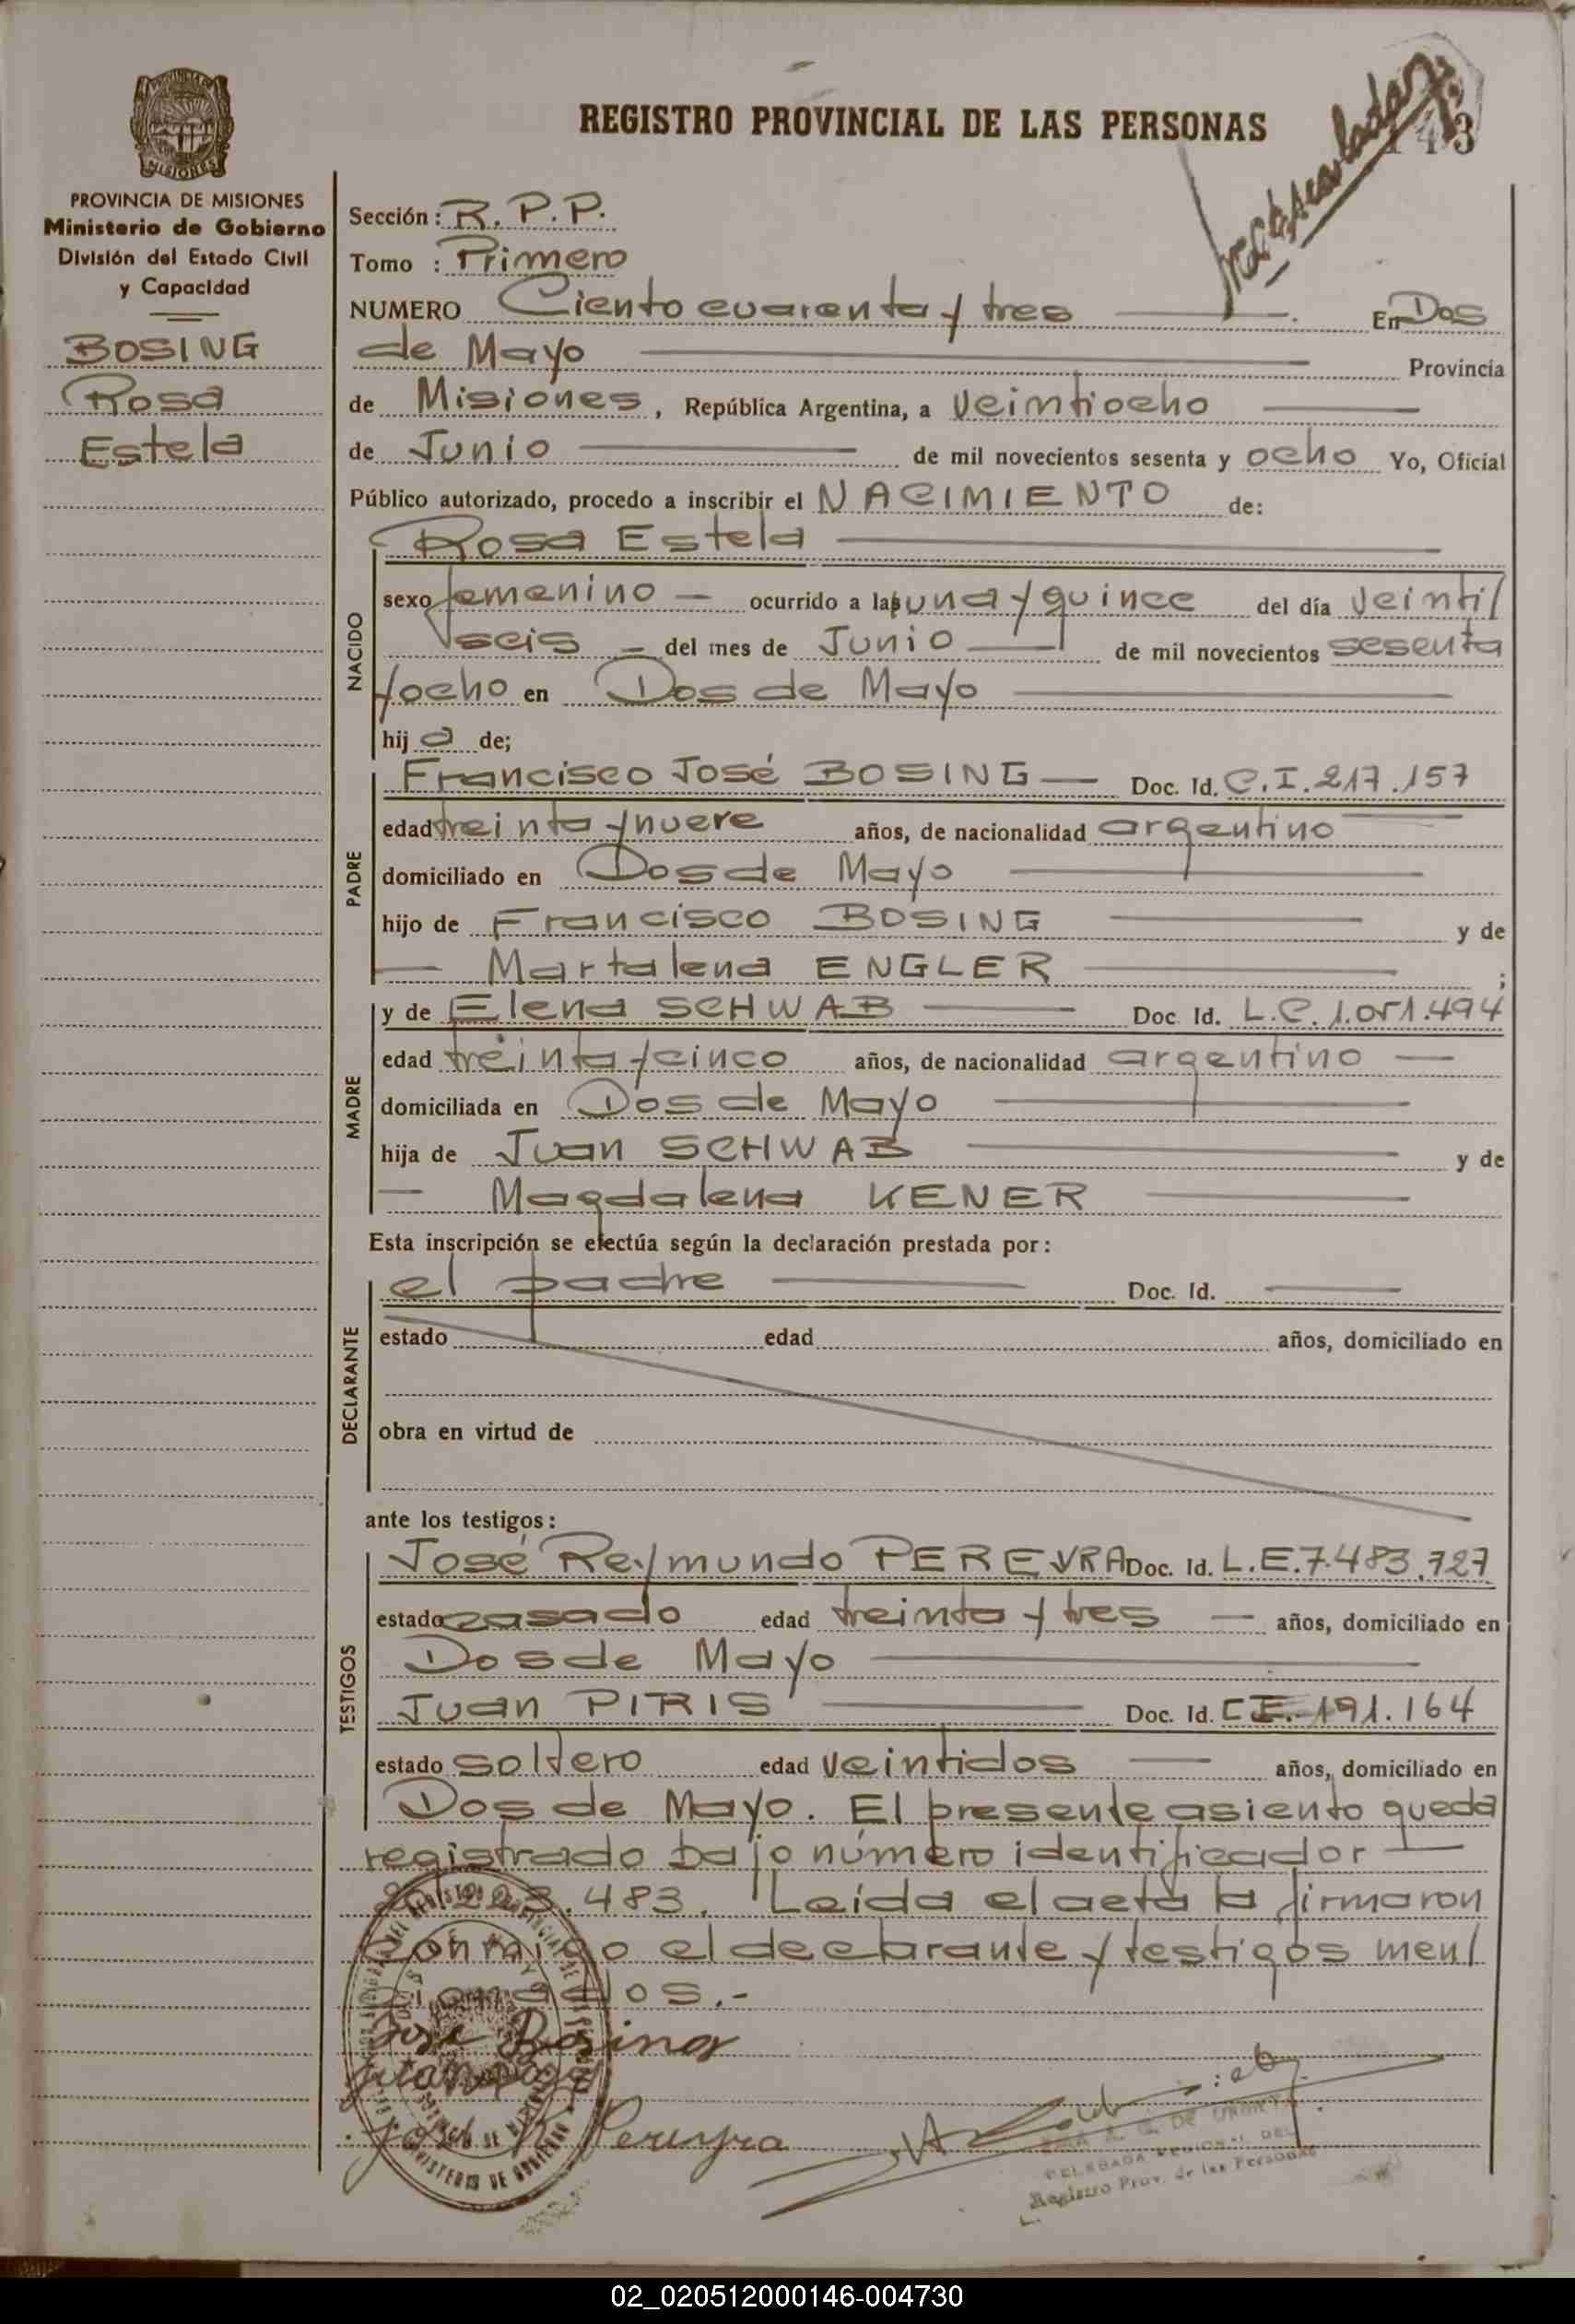 REGISTRO PROVINCIAL DE LAS PERSONAS
143
MISIONES
PROVINCIA DE MISIONES
Ministerio de Gobierno
División del Estado Civil
y Capacidad
BOSING
Rosa
Estela
Sección: R. P. P.
Tomo : Primero
NUMERO Ciento cuarenta y tres En Dos
de Mayo Provincia
de Misiones, República Argentina, a Veintiocho
de Junio de mil novecientos sesenta y ocho Yo, Oficial
Público autorizado, procedo a inscribir el NACIMIENTO de:
Rosa Estela
NACIDO
sexo femenino ocurrido a las una y quince del día veinti/
seis del mes de Junio de mil novecientos sesenta
yocho en Dos de Mayo
hij a de;
PADRE
Francisco José BOSING Doc. Id. C.I. 217.157
edad treinta y nueve años, de nacionalidad argentino
domiciliado en Dos de Mayo
hijo de Francisco BOSING y de
Martalena ENGLER ;
MADRE
y de Elena SCHWAB Doc. Id. L.C. 1.051.494
edad treinta y cinco años, de nacionalidad argentino
domiciliada en Dos de Mayo
hija de Juan SCHWAB y de
Magdalena KENER
Esta inscripción se efectúa según la declaración prestada por:
DECLARANTE
el padre Doc. Id.
estado edad años, domiciliado en
obra en virtud de
ante los testigos:
TESTIGOS
José Reymundo PEREYRA Doc. Id. L.E. 7.483.727
estado casado edad treinta y tres años, domiciliado en
Dos de Mayo
Juan PIRIS Doc. Id. C.I. 191.164
estado soltero edad veintidos años, domiciliado en
Dos de Mayo. El presente asiento queda
registrado bajo número identificador
.483. Leída el acta la firmaron
conmigo el declarante y testigos men/
cionados.-
José Bosing
José R. Pereyra
DELEGADA REGIONAL DEL
Registro Prov. de las Personas
02_020512000146-004730